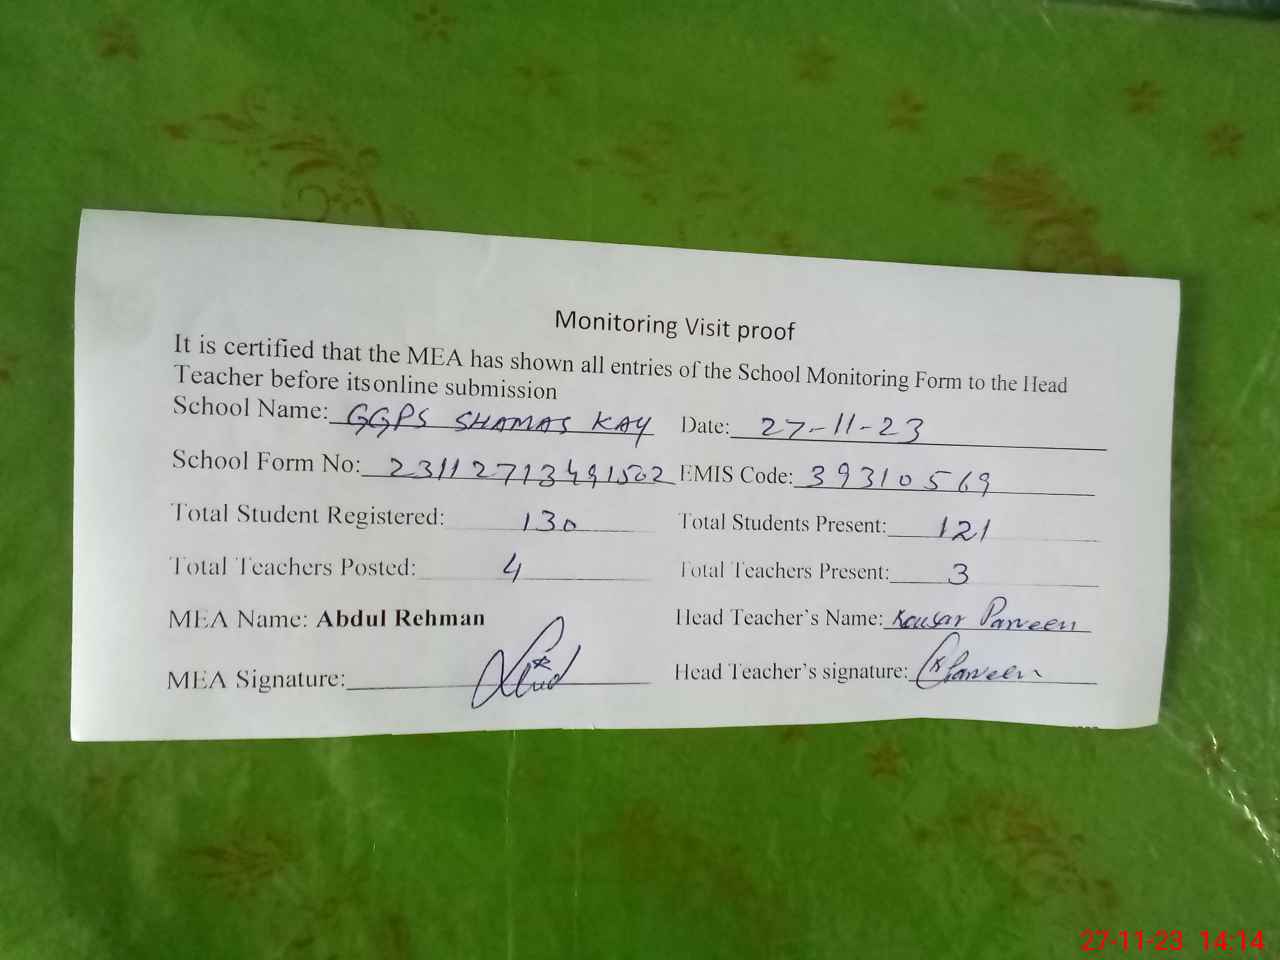 Monitoring Visit proof
It is certified that the MEA has shown all entries of the School Monitoring Form to the Head
Teacher before itsonline submission
School Name: GGPS SHAMAS KAY Date: 27-11-23
School Form No: 23112713491502 EMIS Code: 39310569
Total Student Registered: 130 Total Students Present: 121
Total Teachers Posted: 4 Total Teachers Present: 3
MEA Name: Abdul Rehman Head Teacher's Name: Kousar Parveen
MEA Signature: Head Teacher's signature: KParveen
27-11-23 14:14